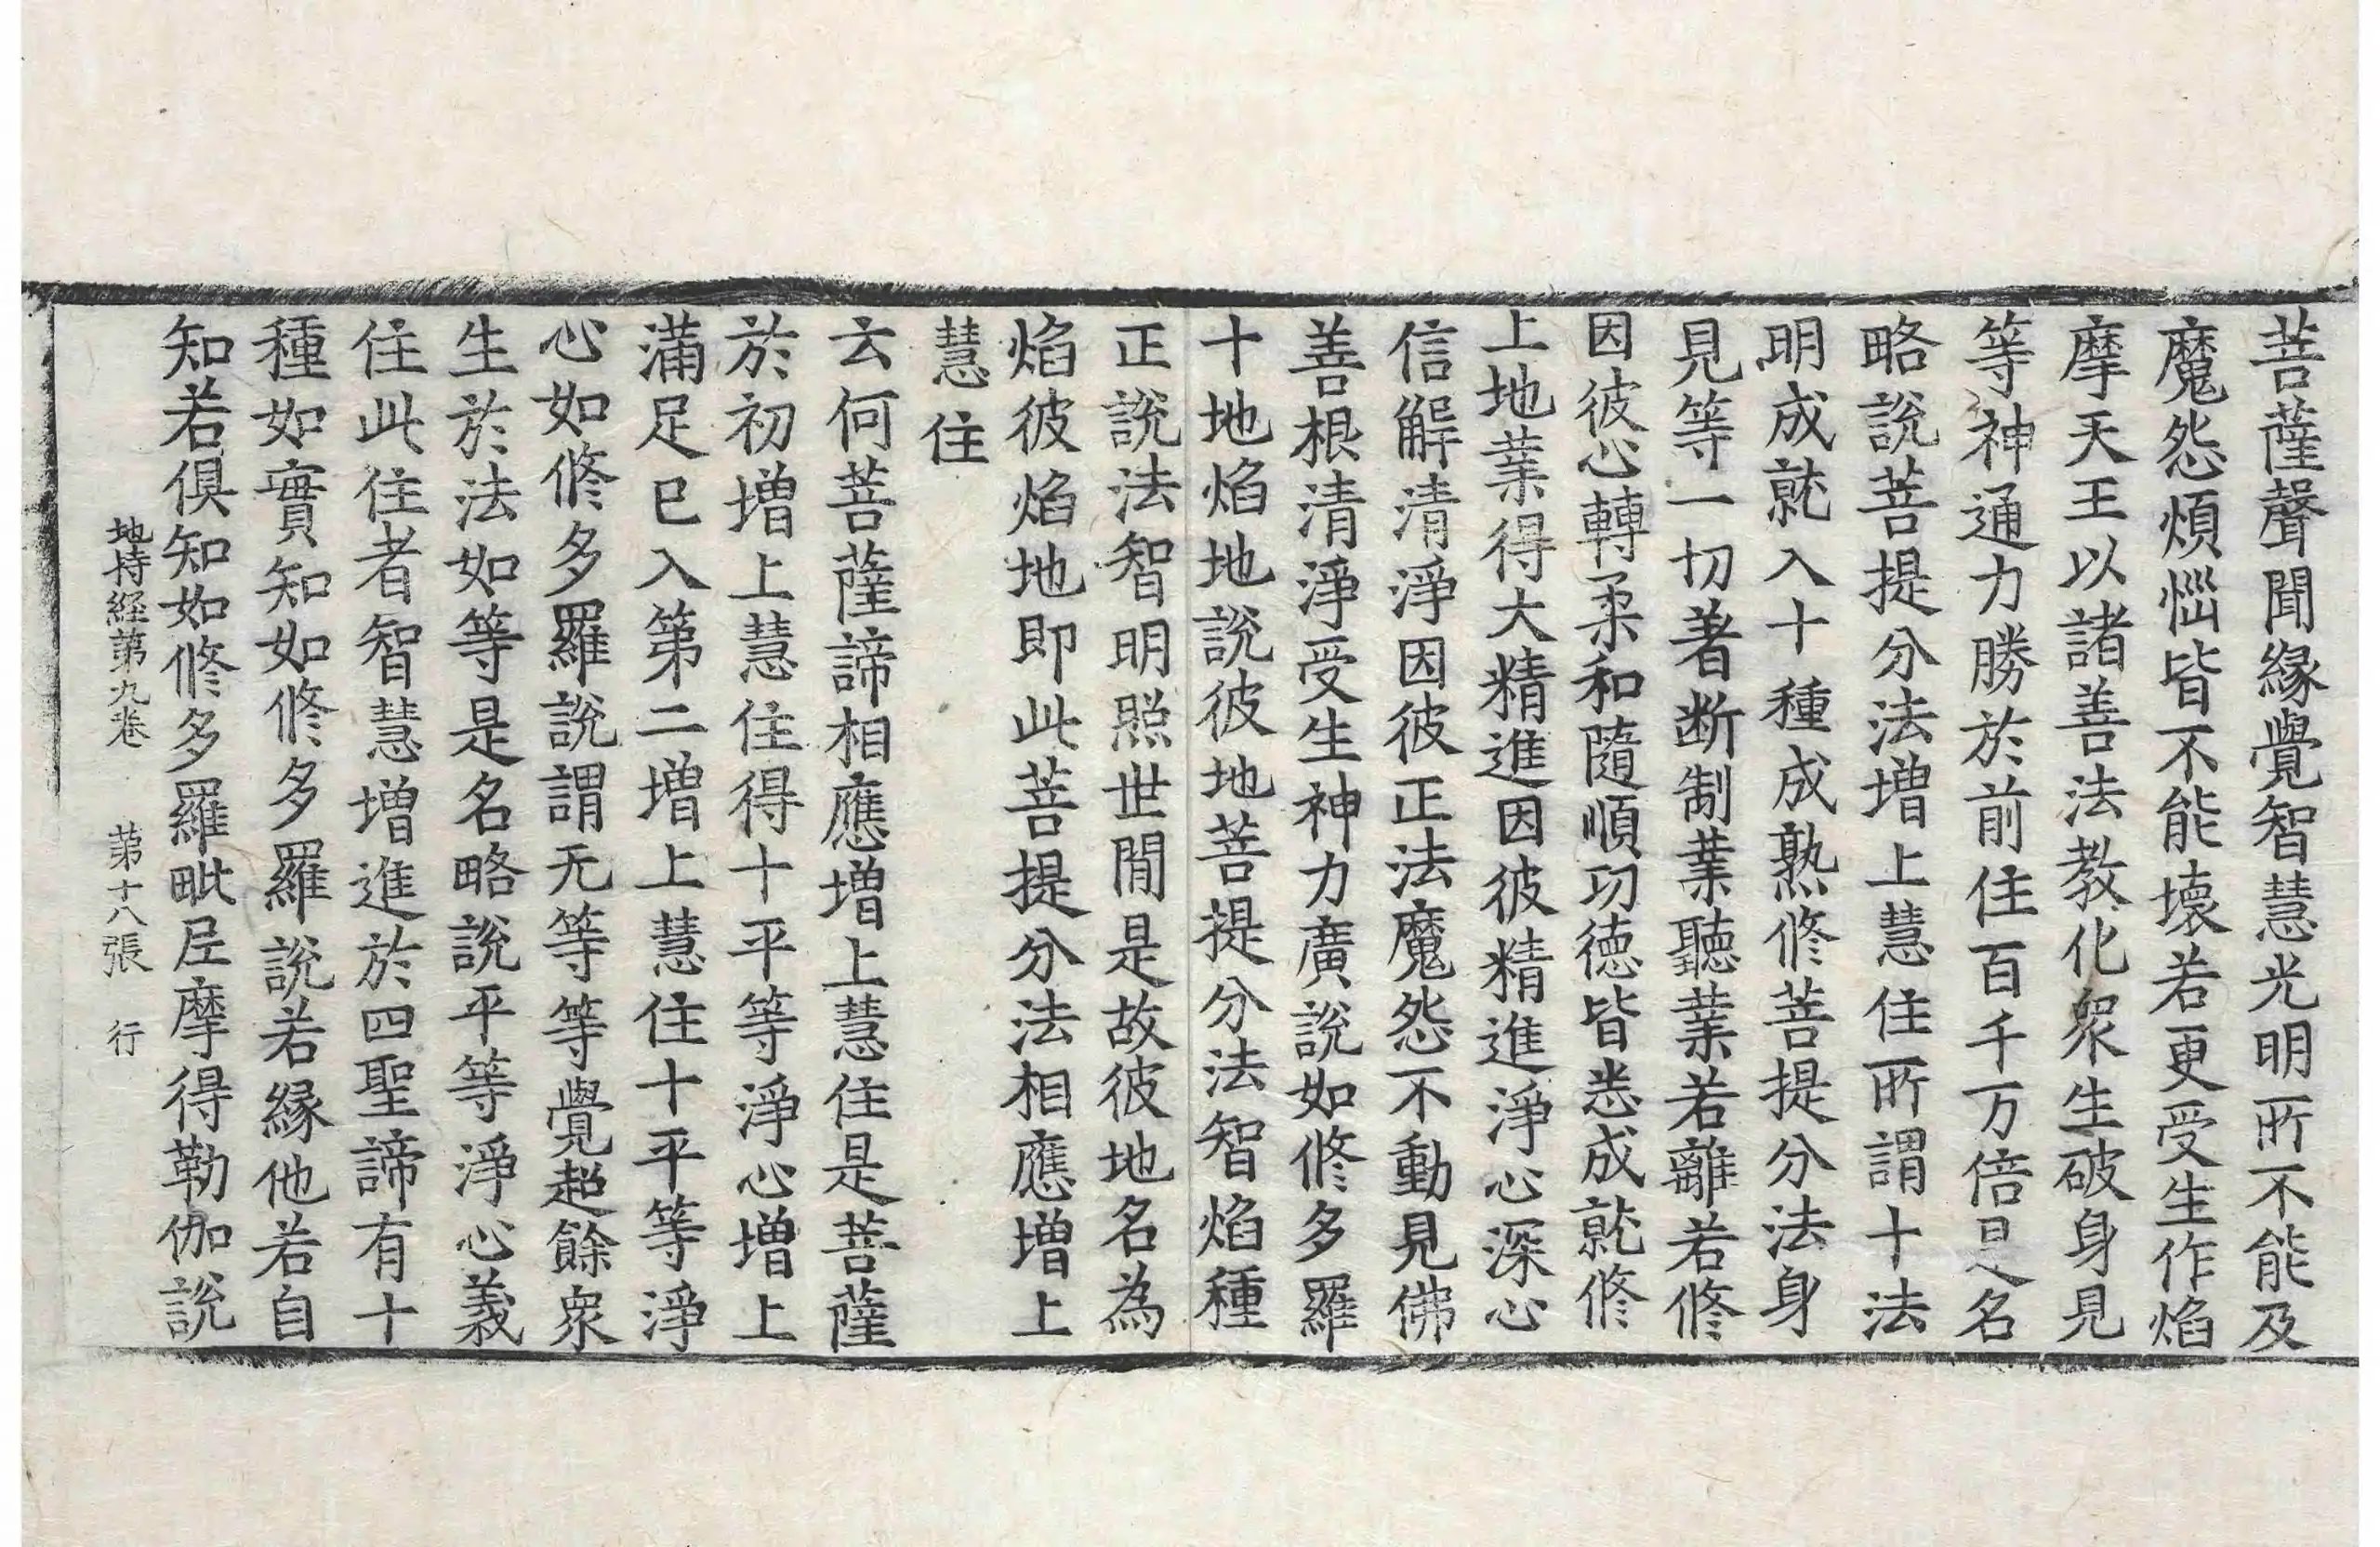 菩薩聲聞緣覺智慧光明所不能及
魔怨煩惱皆不能壞若更受生作焰
摩天王以諸善法教化衆生破身見
等神通力勝於前住百千万倍是名
略說菩提分法增上慧住所謂十法
明成就入十種成熟修菩提分法身
見等一切著斷制業聽業若離若修
因彼心轉柔和隨順功德皆悉成就修
上地業得大精進因彼精進淨心深心
信解清淨因彼正法魔怨不動見佛
善根清淨受生神力廣說如修多羅
十地焰地說彼地菩提分法智焰種
正說法智明照世間是故彼地名為
焰彼焰地即此菩提分法相應增上
慧住
云何菩薩諦相應增上慧住是菩薩
於初增上慧住得十平等淨心增上
滿足已入第二增上慧住十平等淨
心如修多羅說謂无等等覺超餘衆
生於法如等是名略說平等淨心義
住此住者智慧增進於四聖諦有十
種如實知如修多羅說若緣他若自
知若俱知如修多羅毗尼摩得勒伽說
地持経第九卷　第十八張　行